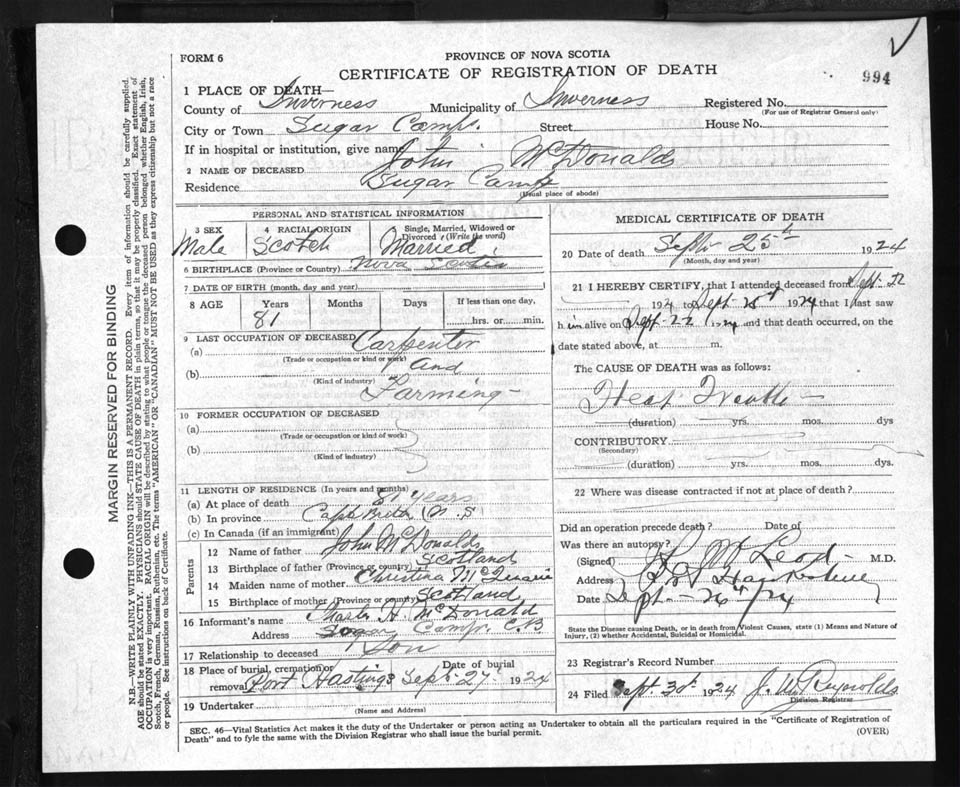 FORM 6
PROVINCE OF NOVA SCOTIA
CERTIFICATE OF REGISTRATION OF DEATH
994
1 PLACE OF DEATH—
County of Inverness Municipality of Inverness Registered No.
(For use of Registrar General only)
City or Town Sugar Camp. Street House No.
If in hospital or institution, give name
2 NAME OF DECEASED John McDonald
Residence Sugar Camp
(Usual place of abode)
PERSONAL AND STATISTICAL INFORMATION
3 SEX 4 RACIAL ORIGIN Single, Married, Widowed or Divorced (Write the word)
Male Scotch Married
6 BIRTHPLACE (Province or Country) Nova Scotia
7 DATE OF BIRTH (month, day and year)
8 AGE Years Months Days If less than one day,
81 hrs. or min.
9 LAST OCCUPATION OF DECEASED
(a) Carpenter
(Trade or occupation or kind of work)
and
(b)
(Kind of industry)
Farming
10 FORMER OCCUPATION OF DECEASED
(a)
(Trade or occupation or kind of work)
(b)
(Kind of industry)
11 LENGTH OF RESIDENCE (In years and months)
(a) At place of death 81 years
(b) In province Cape Breton N.S
(c) In Canada (if an immigrant)
Parents
12 Name of father John McDonald
13 Birthplace of father (Province or country) Scotland
14 Maiden name of mother Christina
15 Birthplace of mother (Province or country) Scotland
16 Informant's name Charles H. McDonald
Address Sugar Camp. C.B.
17 Relationship to deceased Son
18 Place of burial, cremation or removal Port Hastings Date of burial Sept. 27 1924
19 Undertaker
(Name and Address)
MEDICAL CERTIFICATE OF DEATH
20 Date of death Sept 25th 1924
(Month, day and year)
21 I HEREBY CERTIFY, that I attended deceased from Sept. 22
192 to Sept. 1924 that I last saw
h im alive on Sept. 22 1924 and that death occurred, on the
date stated above, at m.
The CAUSE OF DEATH was as follows:
Heart Trouble
(duration) yrs. mos. dys
CONTRIBUTORY
(Secondary)
(duration) yrs. mos. dys.
22 Where was disease contracted if not at place of death?
Did an operation precede death? Date of
Was there an autopsy?
(Signed) McLeod M.D.
Address Port Hawkesbury
Date Sept. 26th 24
State the Disease causing Death, or in death from Violent Causes, state (1) Means and Nature of
Injury, (2) whether Accidental, Suicidal or Homicidal.
23 Registrar's Record Number
24 Filed Sept. 30th 1924 J. W. Reynolds
Division Registrar
SEC. 46—Vital Statistics Act makes it the duty of the Undertaker or person acting as Undertaker to obtain all the particulars required in the "Certificate of Registration of
Death" and to fyle the same with the Division Registrar who shall issue the burial permit.
(OVER)
MARGIN RESERVED FOR BINDING
N.B.—WRITE PLAINLY WITH UNFADING INK—THIS IS A PERMANENT RECORD. Every item of information should be carefully supplied.
AGE should be stated EXACTLY. PHYSICIANS should STATE CAUSE OF DEATH in plain terms, so that it may be properly classified. Exact statement of
OCCUPATION is very important. RACIAL ORIGIN will be described by stating to what people or tongue the deceased person belonged whether English, Irish,
Scotch, French, German, Russian, Ruthenian, etc. The terms "AMERICAN" OR "CANADIAN" MUST NOT BE USED as they express citizenship but not a race
or people. See instructions on back of Certificate.